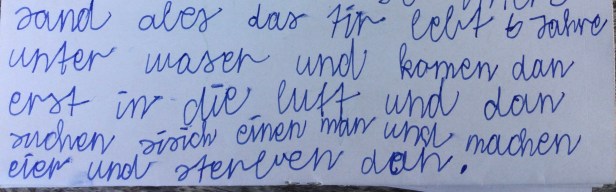 sand aber das tir lebt 6 Jahre
unter waser und komen dan
erst in die luft und dan
suchen sisich einen man und machen
eier und stereven dan.